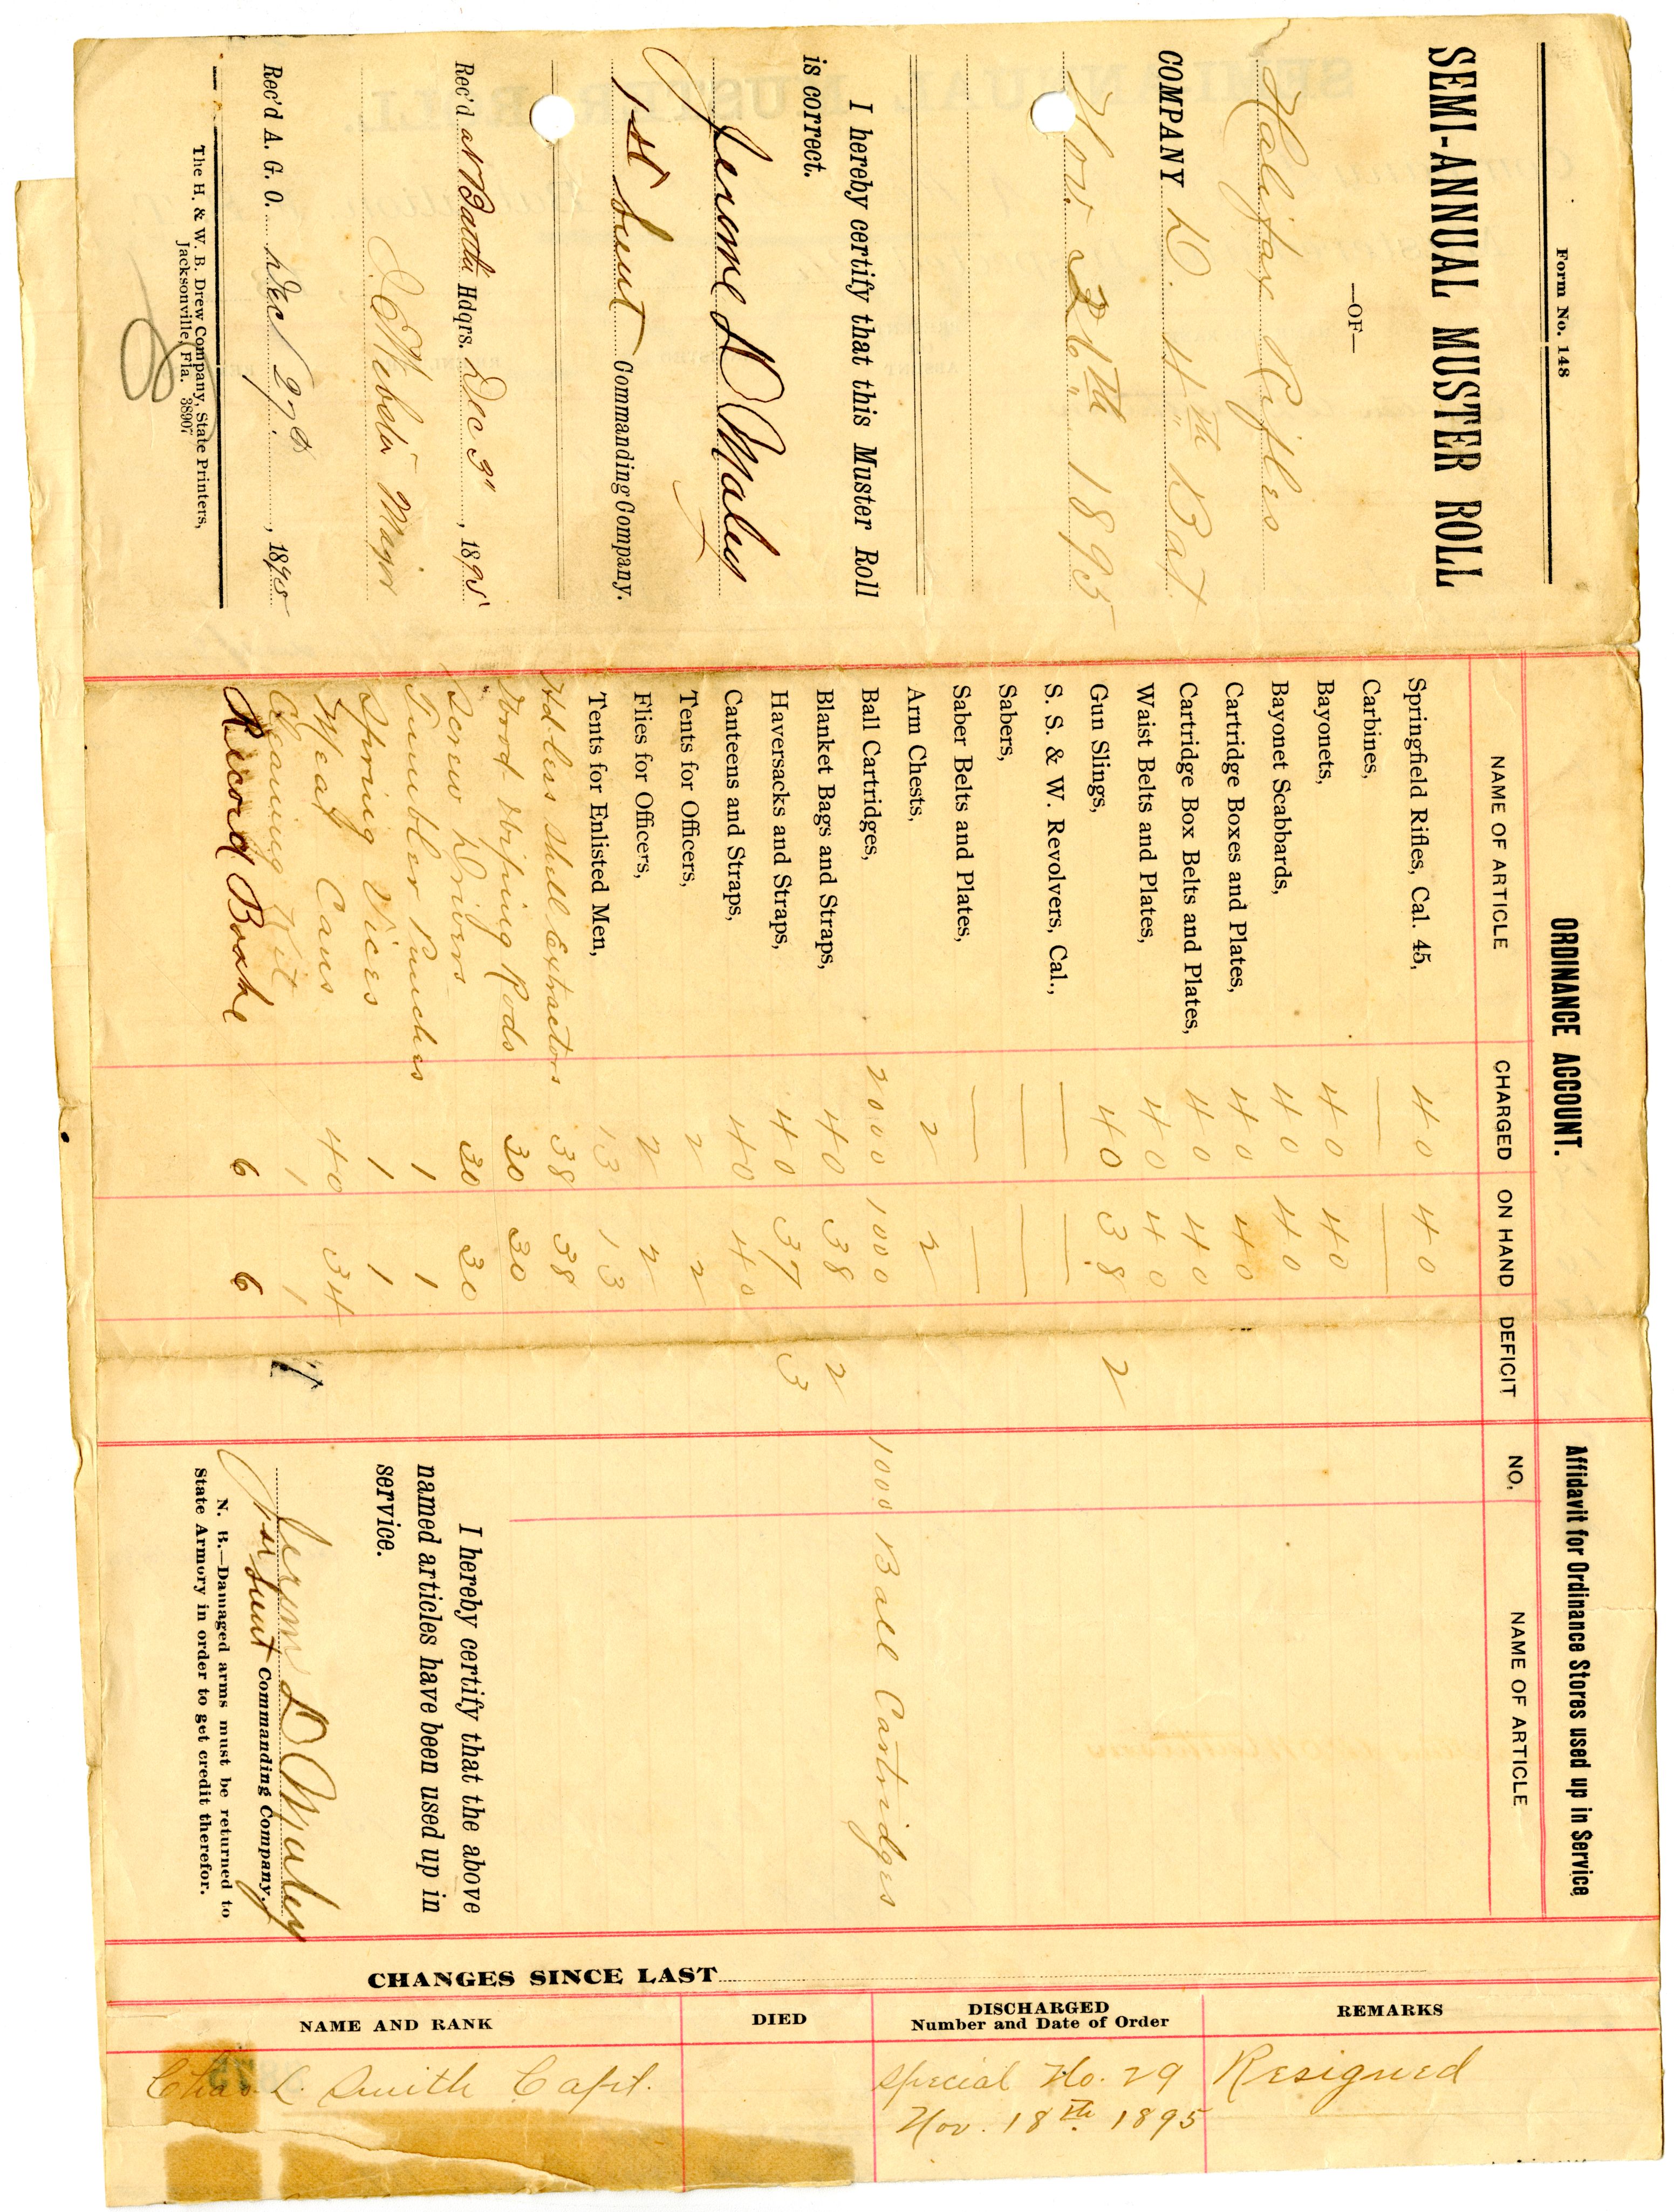 Form No. 148
SEMI-ANNUAL MUSTER ROLL
—OF—
Halifax Rifles
COMPANY D. 4th Bat
Nov. 26th 1895
I hereby certify that this Muster Roll
is correct.
Jerome D Maley
1st Lieut Commanding Company.
Rec'd at Battn Hdqrs. Dec 3", 1895
Major
Rec'd A. G. O. Dec 27th, 1895
The H. & W. B. Drew Company, State Printers,
Jacksonville, Fla. 38907
ORDINANCE ACCOUNT.
NAME OF ARTICLE CHARGED ON HAND DEFICIT
Springfield Rifles, Cal. 45, 40 40
Carbines, — —
Bayonets, 40 40
Bayonet Scabbards, 40 40
Cartridge Boxes and Plates, 40 40
Cartridge Box Belts and Plates, 40 40
Waist Belts and Plates, 40 40
Gun Slings, 40 38 2
S. S. & W. Revolvers, Cal., — —
Sabers, — —
Saber Belts and Plates, — —
Arm Chests, 2 2
Ball Cartridges, 2000 1000
Blanket Bags and Straps, 40 38 2
Haversacks and Straps, 40 37 3
Canteens and Straps, 40 40
Tents for Officers, 2 2
Flies for Officers, 2 2
Tents for Enlisted Men, 13 13
Hdless Shell Extractors 38 38
Wood Wiping Rods 30 30
Screw Drivers 30 30
Tumbler Punches 1 1
Spring Vices 1 1
Meat Cans 40 34
Cleaning Kit 1 1
Record Books 6 6
Affidavit for Ordinance Stores used up in Service
NO. NAME OF ARTICLE
1000 Ball Cartridges
I hereby certify that the above
named articles have been used up in
service.
Jerome D Maley
1st Lieut Commanding Company.
N. B.—Damaged arms must be returned to
State Armory in order to get credit therefor.
CHANGES SINCE LAST
NAME AND RANK DIED DISCHARGED REMARKS
Number and Date of Order
Chas. L. Smith Capt. Special No. 29 Resigned
Nov. 18th 1895